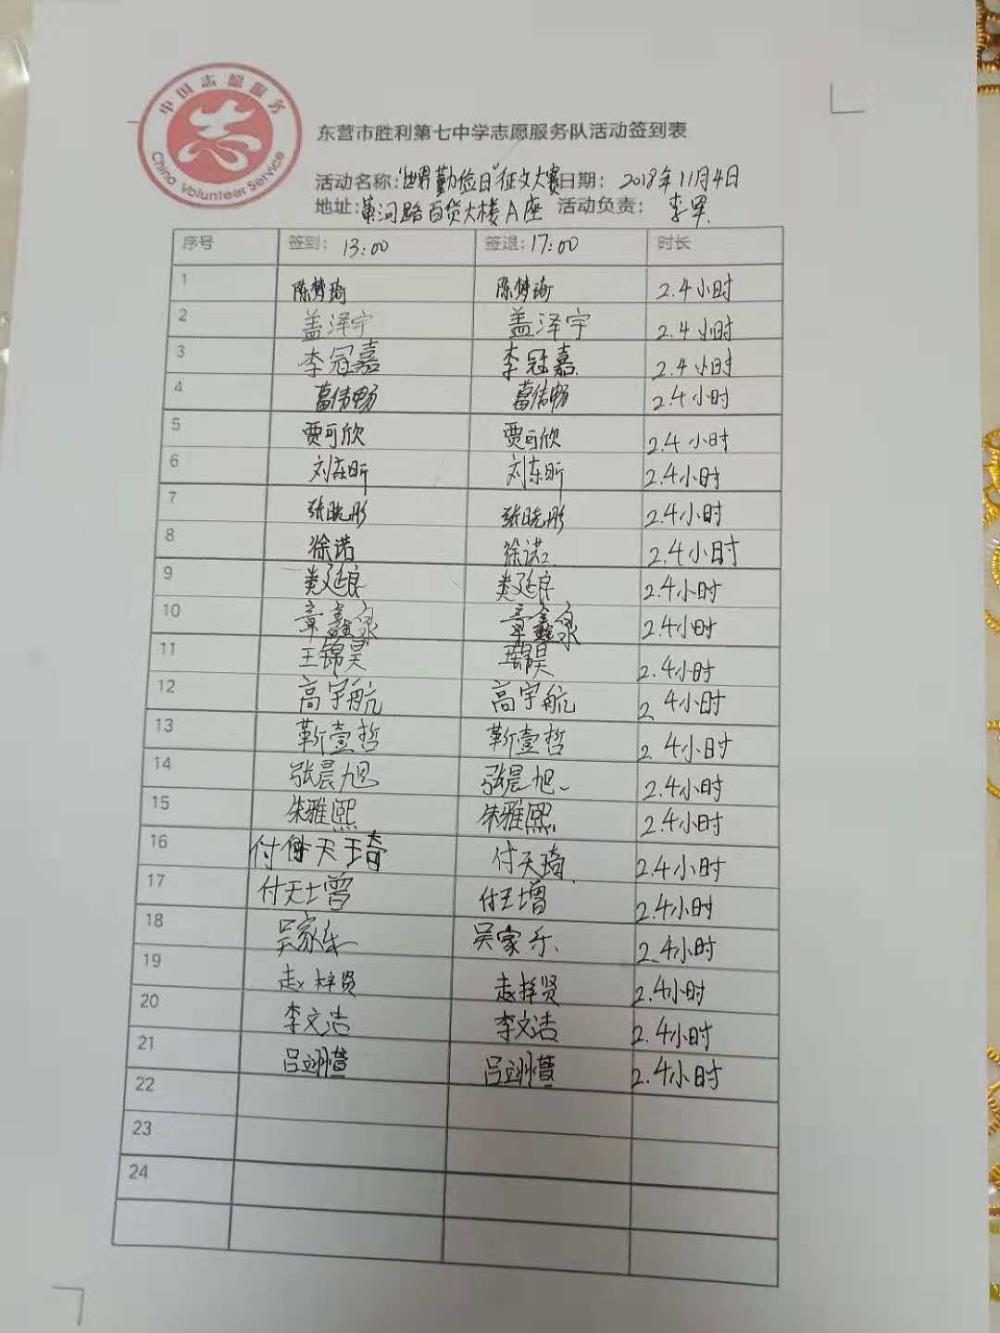 中国志愿服务
志
China Volunteer Service
东营市胜利第七中学志愿服务队活动签到表
活动名称:“世界勤俭日”征文大赛日期: 2018年11月4日
地址:黄河路百货大楼A座 活动负责: 李军
序号 签到: 13:00 签退:17:00 时长
1 陈梦琦 陈梦琦 2.4小时
2 盖泽宇 盖泽宇 2.4小时
3 李冠嘉 李冠嘉 2.4小时
4 葛伟畅 葛伟畅 2.4小时
5 贾可欣 贾可欣 2.4小时
6 刘东昕 刘东昕 2.4小时
7 张晓彤 张晓彤 2.4小时
8 徐诺 徐诺 2.4小时
9 娄延良 娄延良 2.4小时
10 章鑫泉 章鑫泉 2.4小时
11 王锦昊 王锦昊 2.4小时
12 高宇航 高宇航 2.4小时
13 靳壹哲 靳壹哲 2.4小时
14 张晨旭 张晨旭 2.4小时
15 朱雅熙 朱雅熙 2.4小时
16 付天琦 付天琦 2.4小时
17 付天增 付天增 2.4小时
18 吴家乐 吴家乐 2.4小时
19 赵梓贤 赵梓贤 2.4小时
20 李文洁 李文洁 2.4小时
21 吕翊萱 吕翊萱 2.4小时
22
23
24